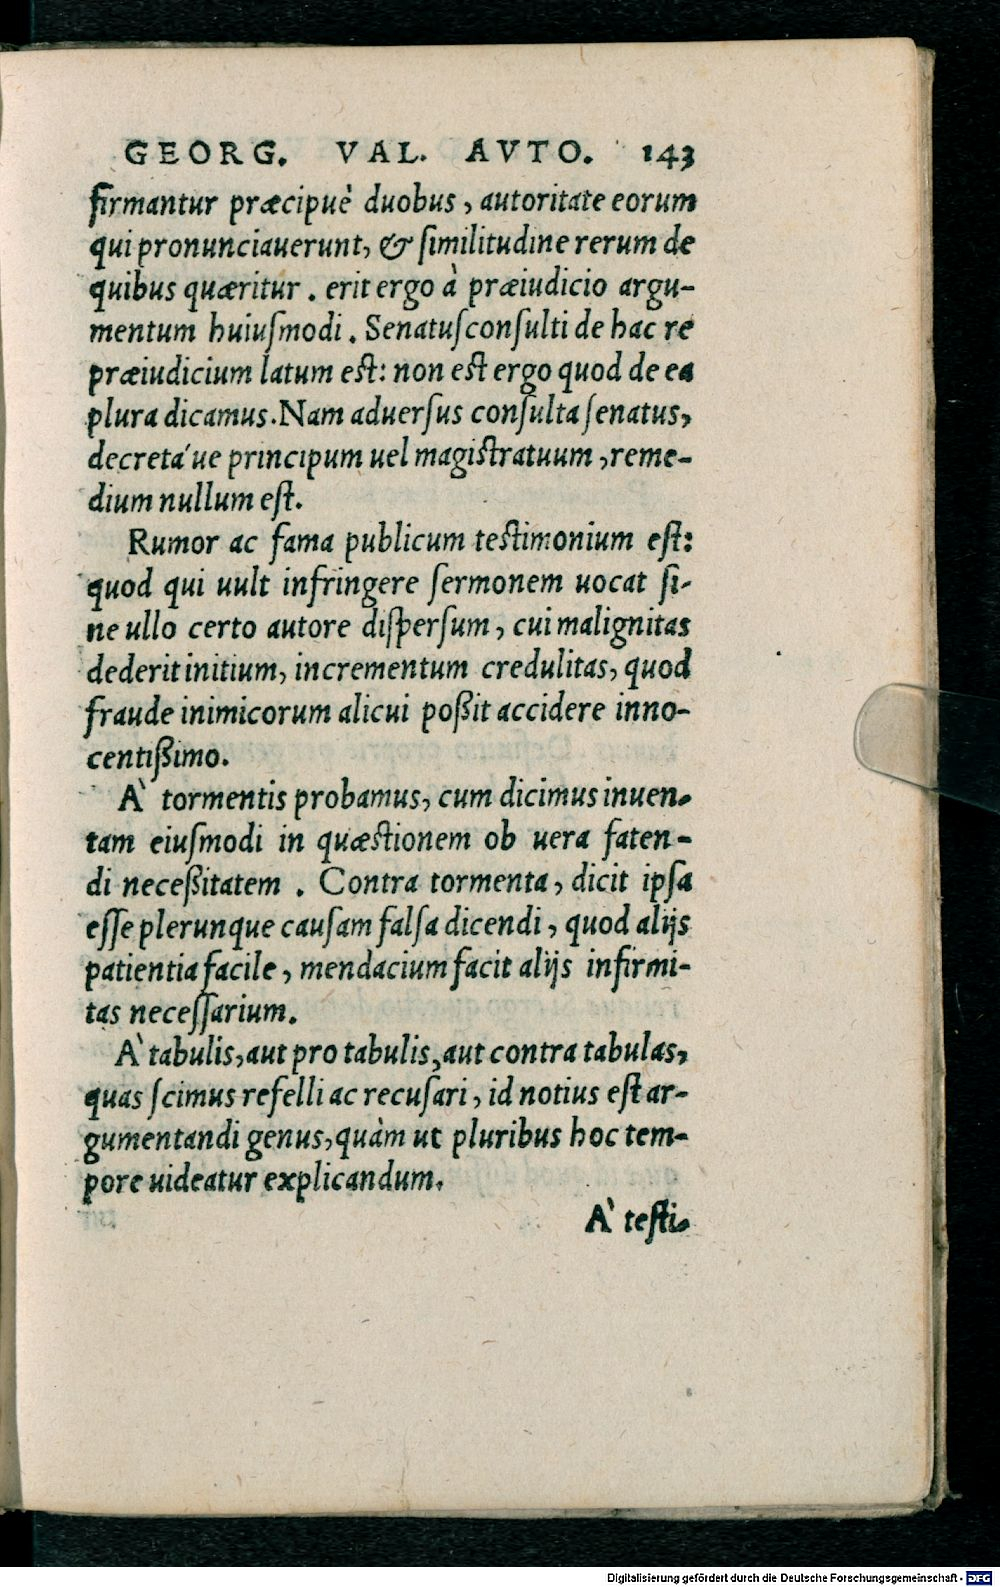 GEORG. VAL. AVTO. 143
firmantur præcipuè duobus, autoritate eorum
qui pronunciauerunt, & similitudine rerum de
quibus quæritur. erit ergo à præiudicio argu-
mentum huiusmodi. Senatusconsulti de hac re
præiudicium latum est: non est ergo quod de ea
plura dicamus. Nam aduersus consulta senatus,
decreta´ue principum uel magistratuum, reme-
dium nullum est.
Rumor ac fama publicum testimonium est:
quod qui uult infringere sermonem uocat si-
ne ullo certo autore dispersum, cui malignitas
dederit initium, incrementum credulitas, quod
fraude inimicorum alicui poßit accidere inno-
centißimo.
À tormentis probamus, cum dicimus inuen-
tam eiusmodi in quæstionem ob uera faten-
di neceßitatem. Contra tormenta, dicit ipsa
esse plerunque causam falsa dicendi, quod alijs
patientia facile, mendacium facit alijs infirmi-
tas necessarium.
À tabulis, aut pro tabulis, aut contra tabulas,
quas scimus refelli ac recusari, id notius est ar-
gumentandi genus, quàm ut pluribus hoc tem-
pore uideatur explicandum.
À testi-
Digitalisierung gefördert durch die Deutsche Forschungsgemeinschaft - DFG